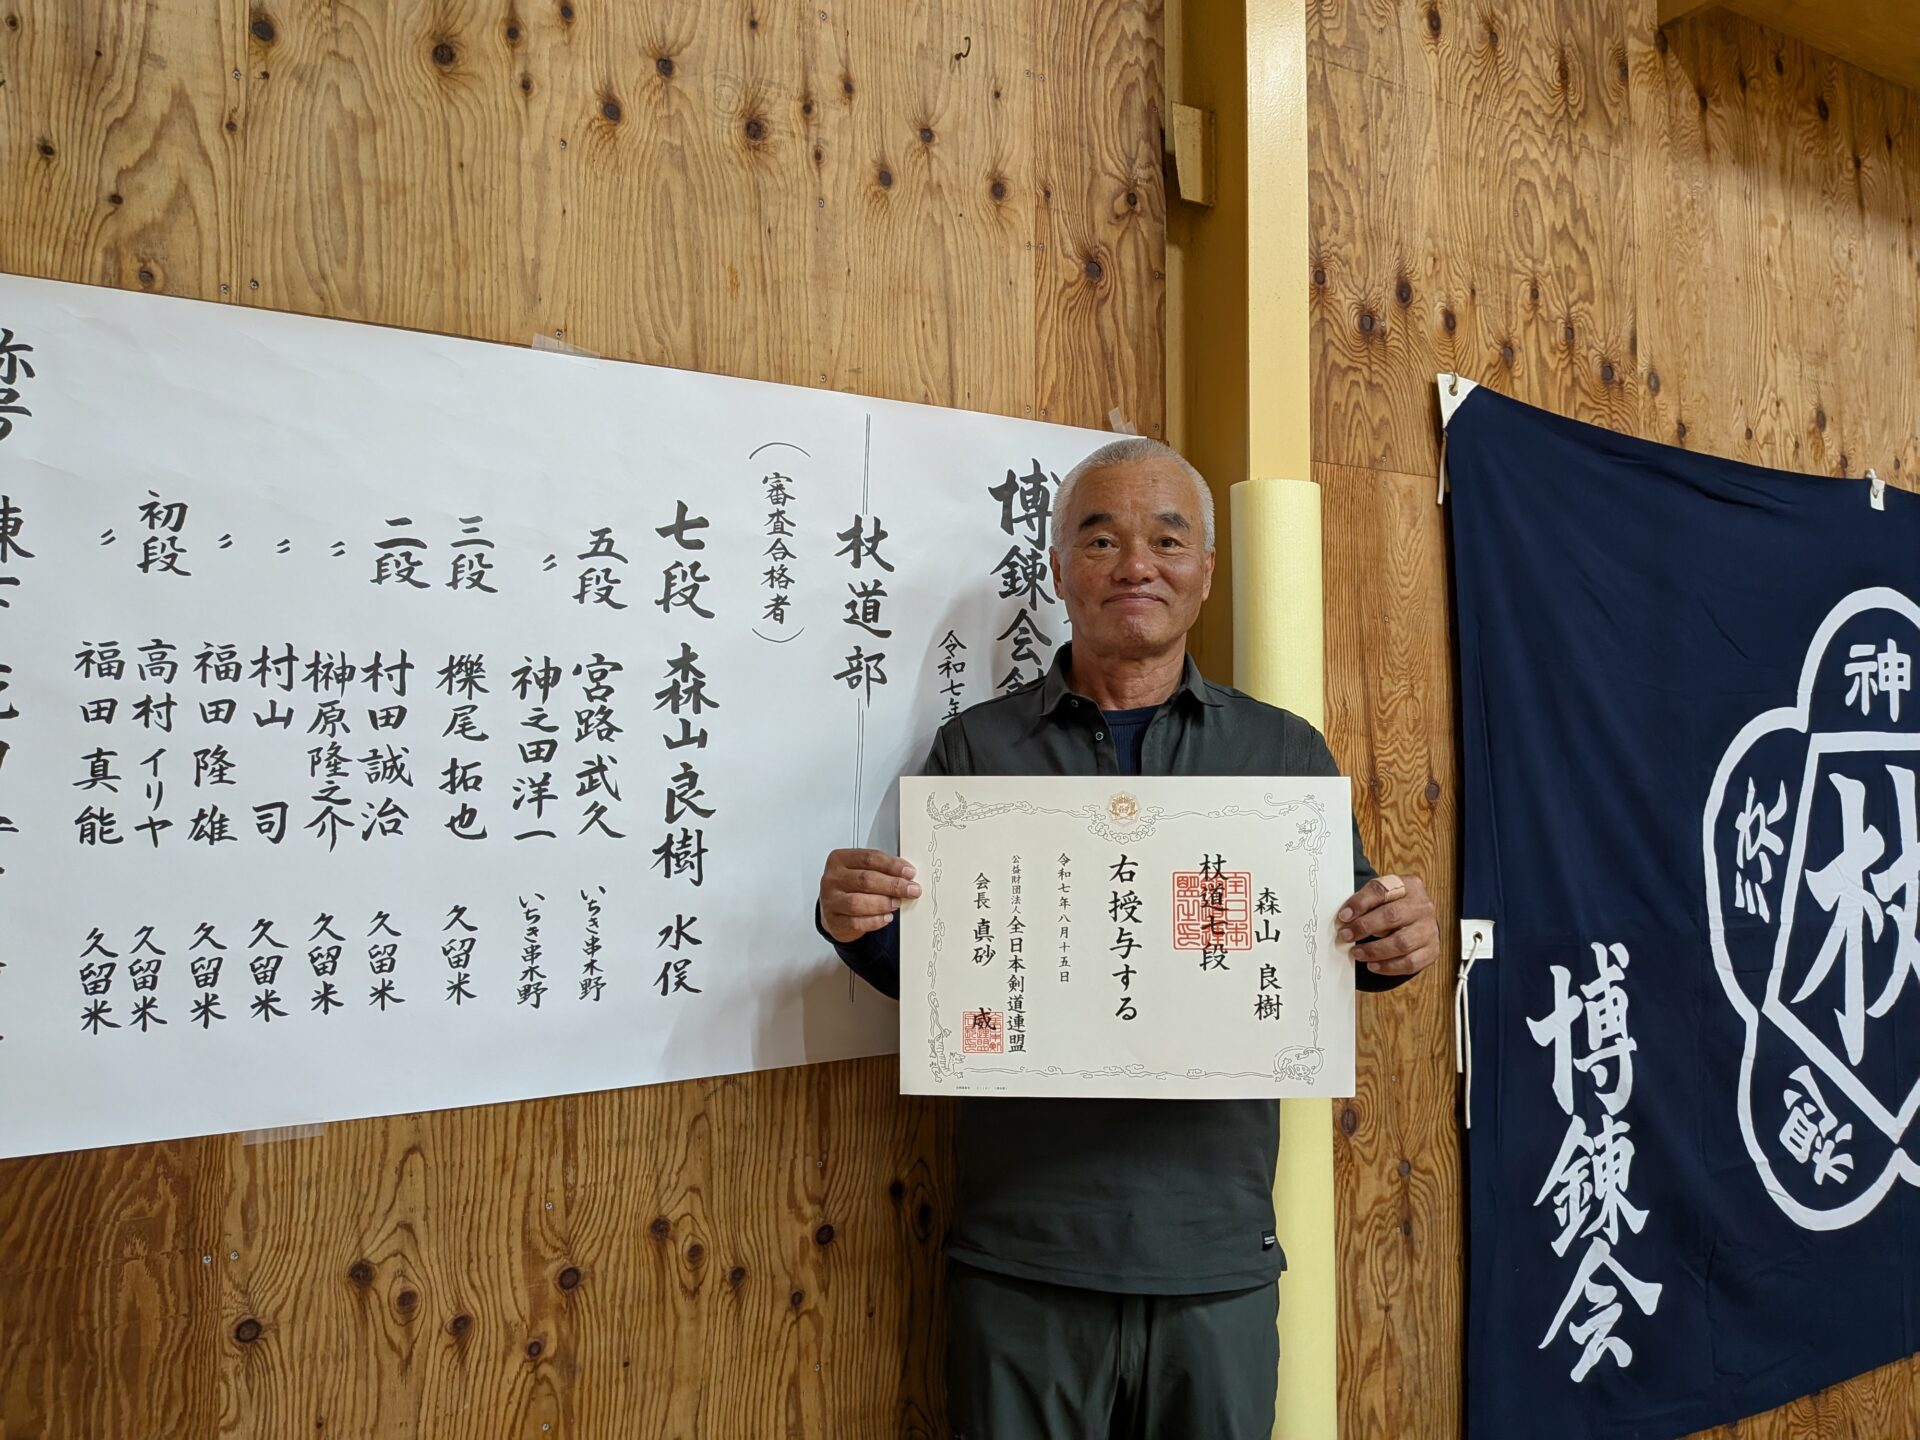 博錬会
令和七年
杖道部
（審査合格者）
七段 森山良樹 水俣
五段 宮路武久 いちき串木野
〃 神之田洋一 いちき串木野
三段 櫟尾拓也 久留米
二段 村田誠治 久留米
〃 榊原隆之介 久留米
〃 村山司 久留米
〃 福田隆雄 久留米
初段 高村イリヤ 久留米
〃 福田真能 久留米
森山 良樹
杖道七段
右授与する
令和七年八月十五日
公益財団法人 全日本剣道連盟
会長 真砂 威
神
杖
博錬会